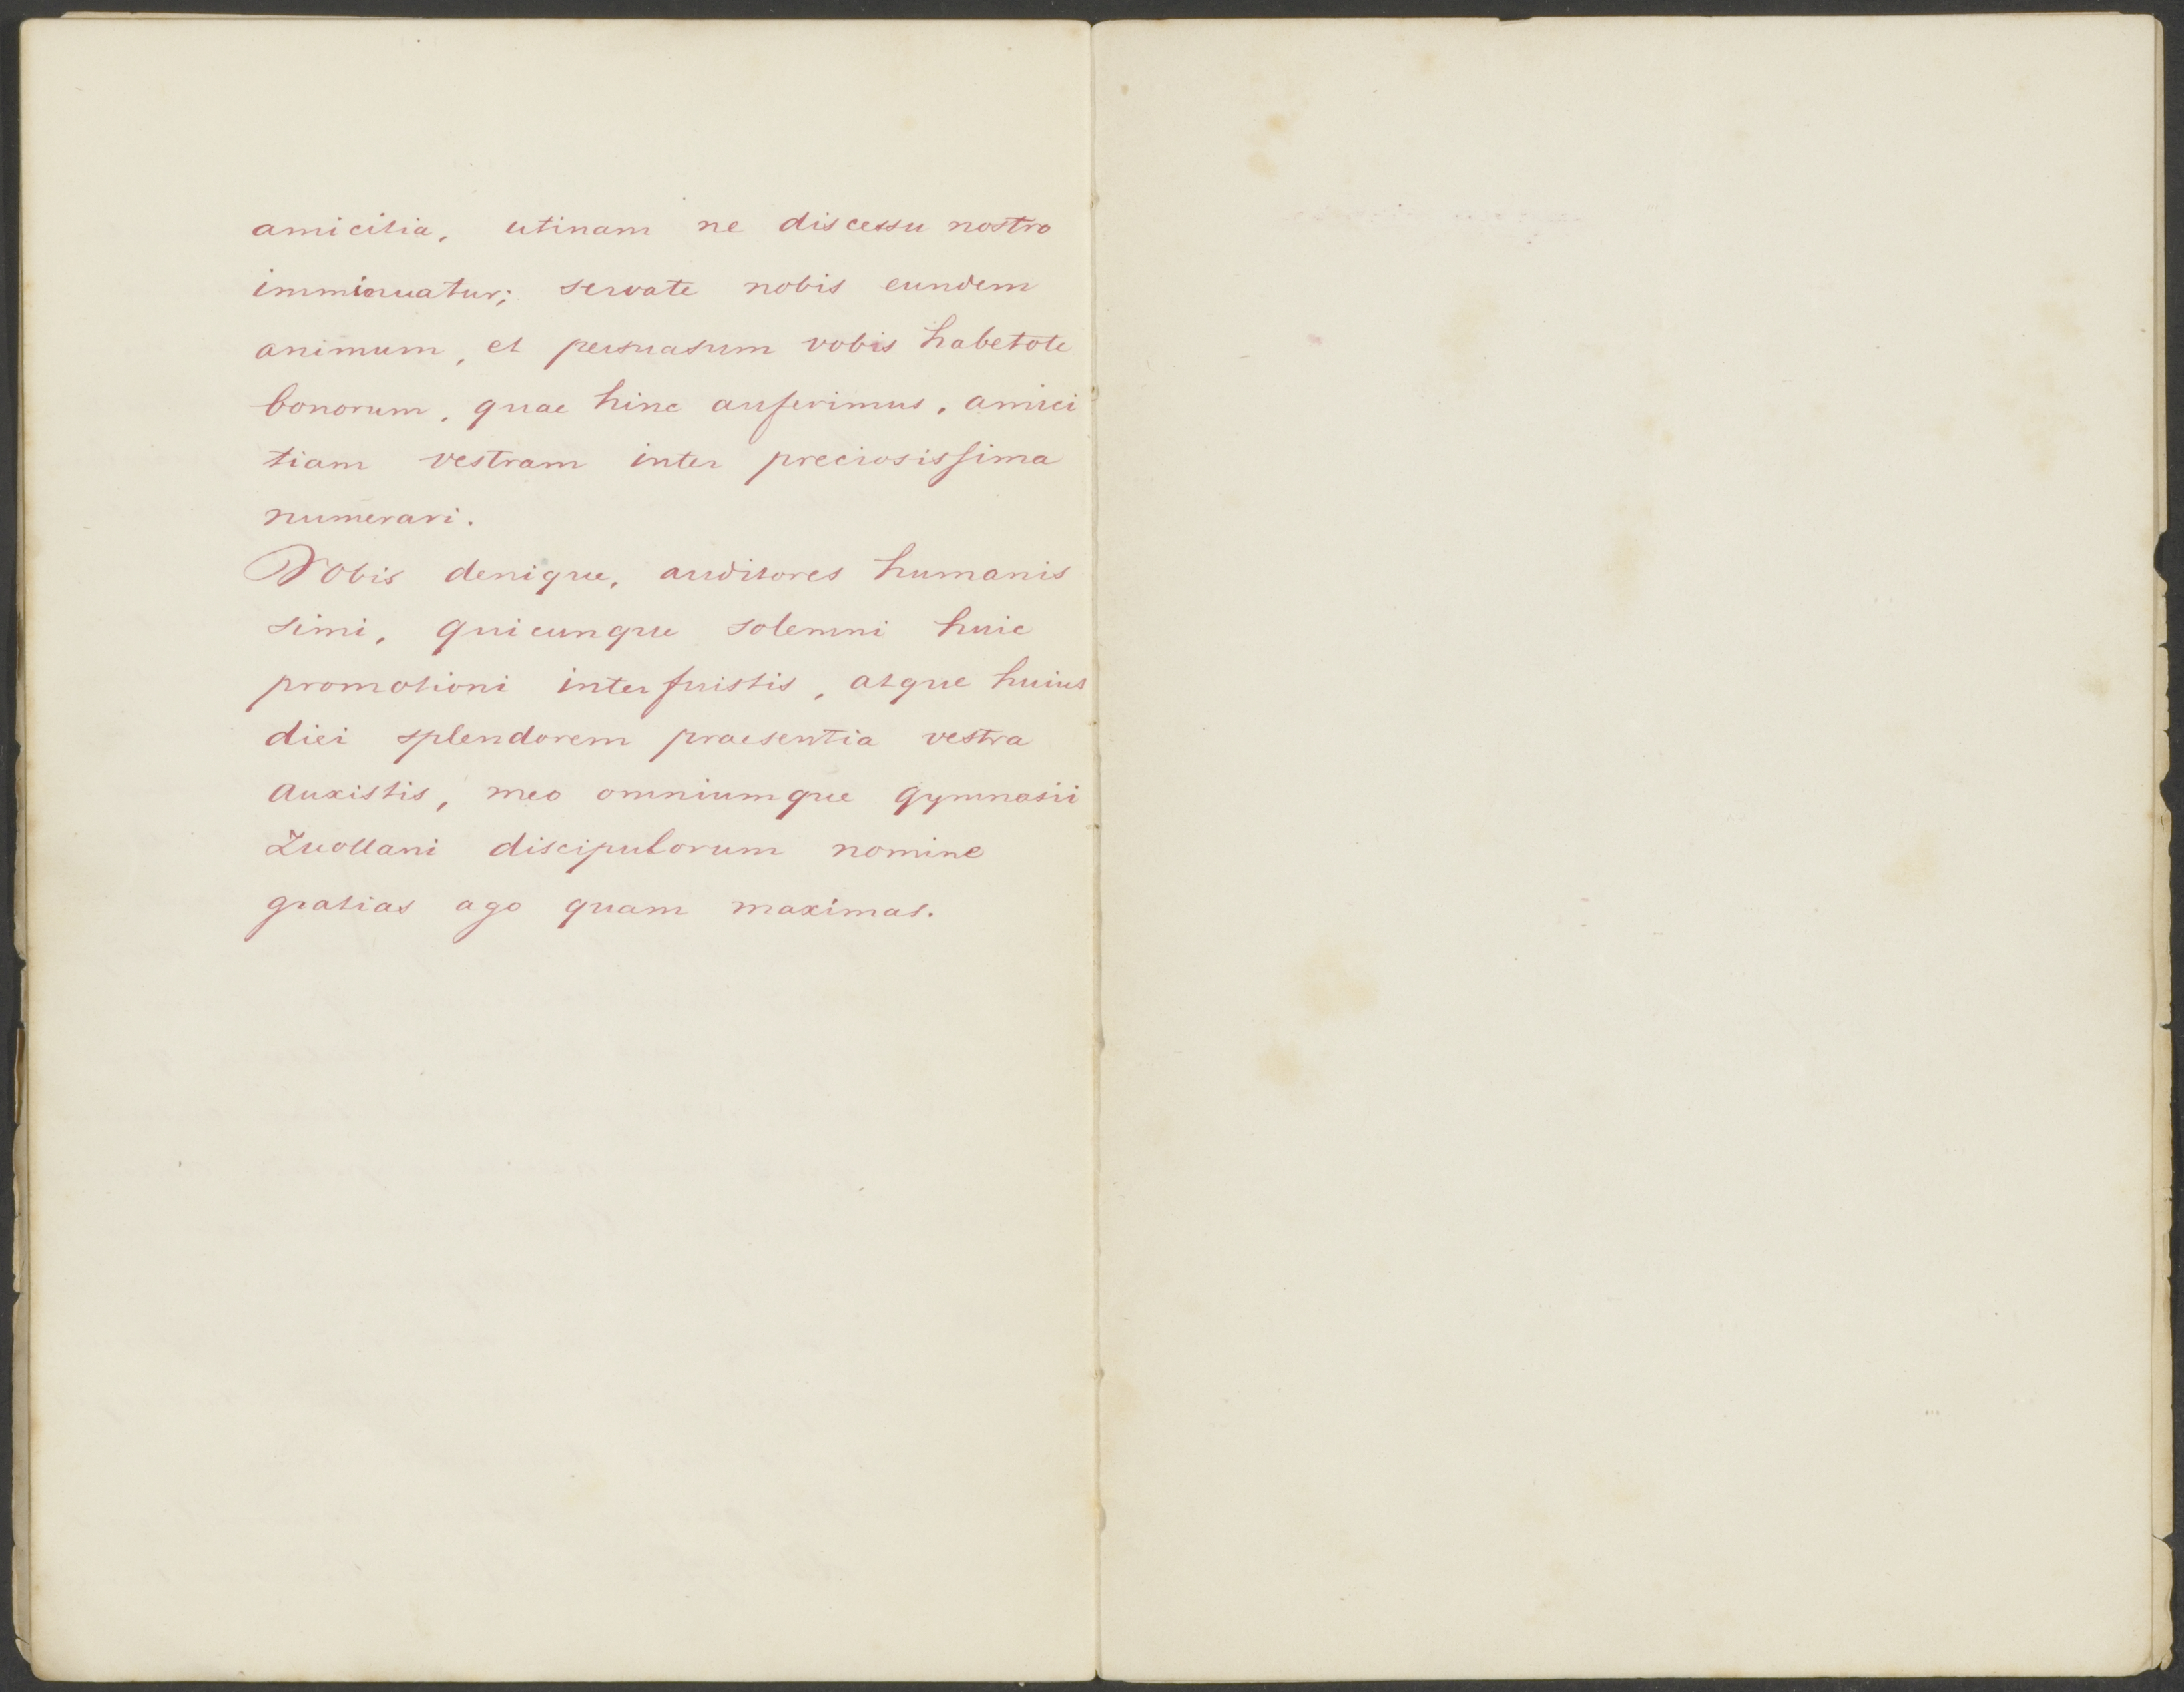 amicitia, utinam ne discessu nostro
imminuatur; servate nobis eundem
animum, et persuasum vobis habetote
bonorum, quae hinc auferimus, amici
tiam vestram inter preciosissima
numerari.
Vobis denique, auditores humanis
simi, quicunque solemni huic
promotioni interfuistis, atque huius
diei splendorem praesentia vestra
auxistis, meo omniumque gymnasii
Zuollani discipulorum nomine
gratias ago quam maximas.